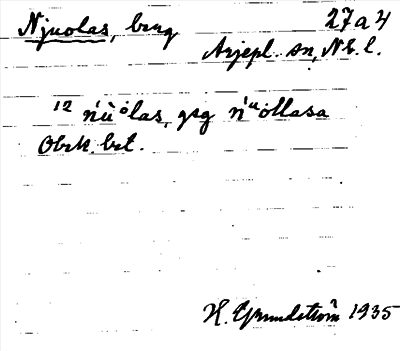 Njuolas, berg 27a4
Arjepl. sn, N.L.l.
12 ńù͔ólas, gsg ńᵘollasa
Obek. bet.
H. Grundström 1935